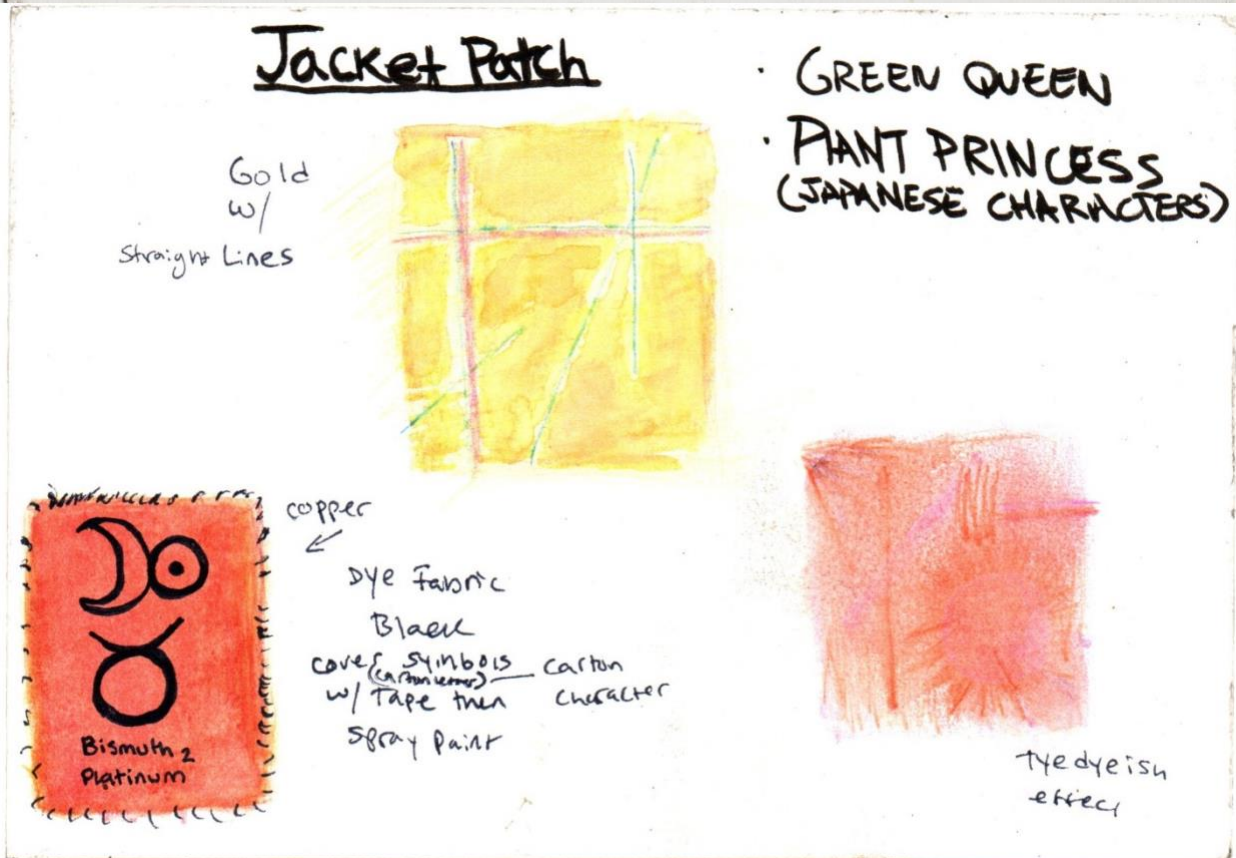 Jacket Patch
· GREEN QUEEN
· PLANT PRINCESS
(JAPANESE CHARACTERS)
Gold
w/
Straight Lines
copper
Dye Fabric
Black
cover symbols
w/ Tape then
Spray Paint
carton
character
Bismuth 2
Platinum
tyedyeish
effect